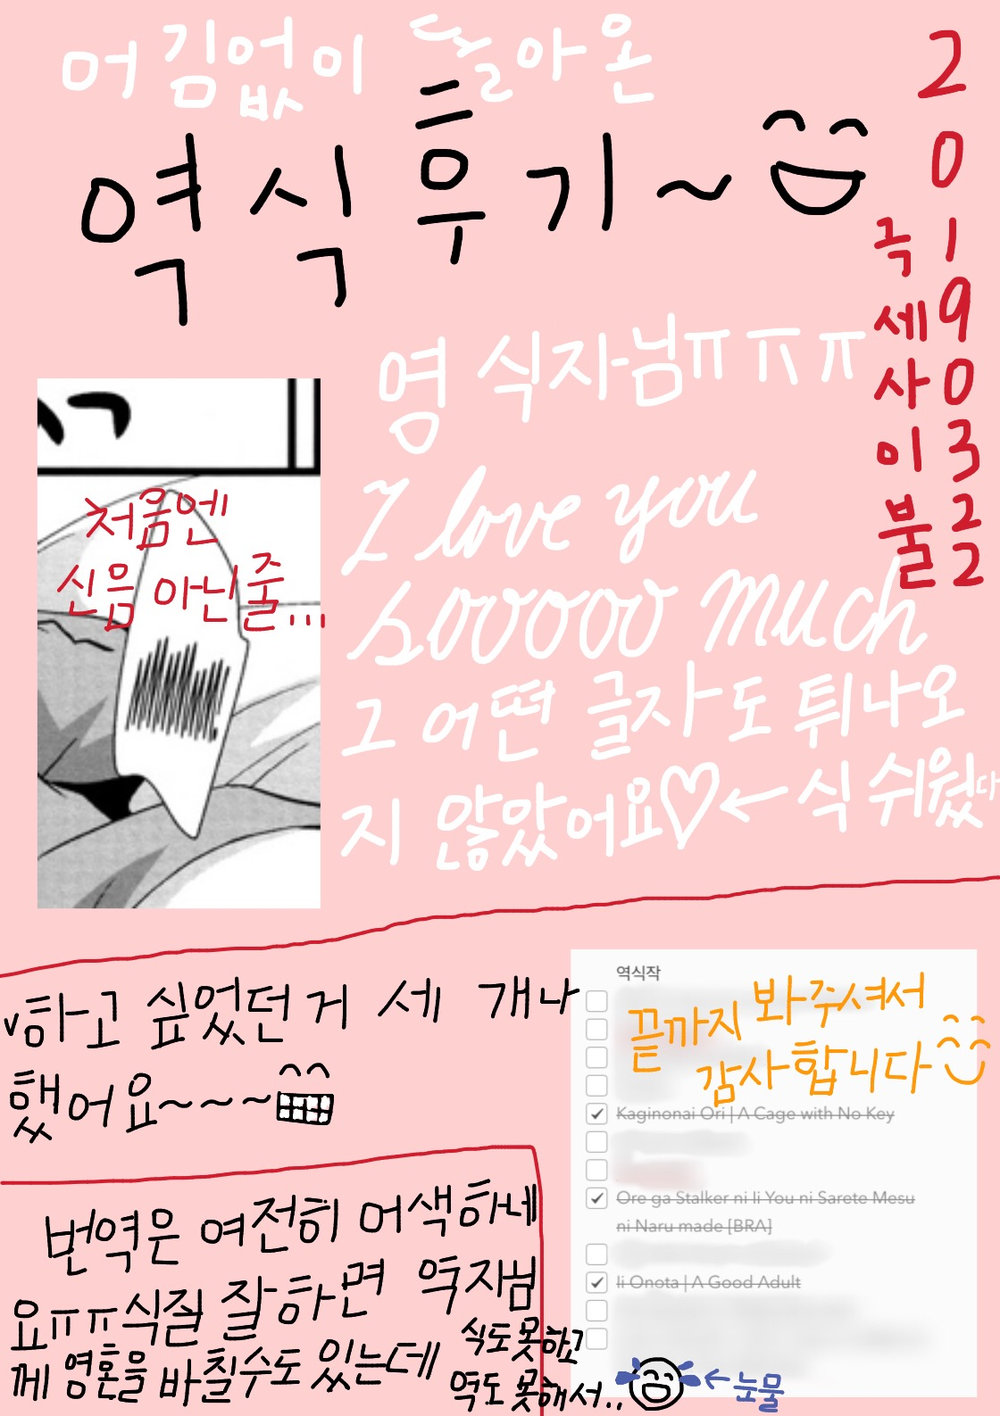 어김없이 돌아온
역식후기~
20190322
극세사이불
영 식자님ㅠㅠㅠ
I love you
sooooo much
그 어떤 글자도 튀나오
지 않았어요♡←식 쉬웠다
처음엔
신음 아닌줄...
하고 싶었던거 세 개나
했어요~~~
역식작
끝까지 봐주셔서
감사합니다
Kaginonai Ori | A Cage with No Key
Ore ga Stalker ni Ii You ni Sarete Mesu
ni Naru made [BRA]
Ii Onota | A Good Adult
번역은 여전히 어색하네
요ㅠㅠ식질 잘하면 역자님
께 영혼을 바칠수도 있는데
식도 못하고
역도 못해서..
←눈물